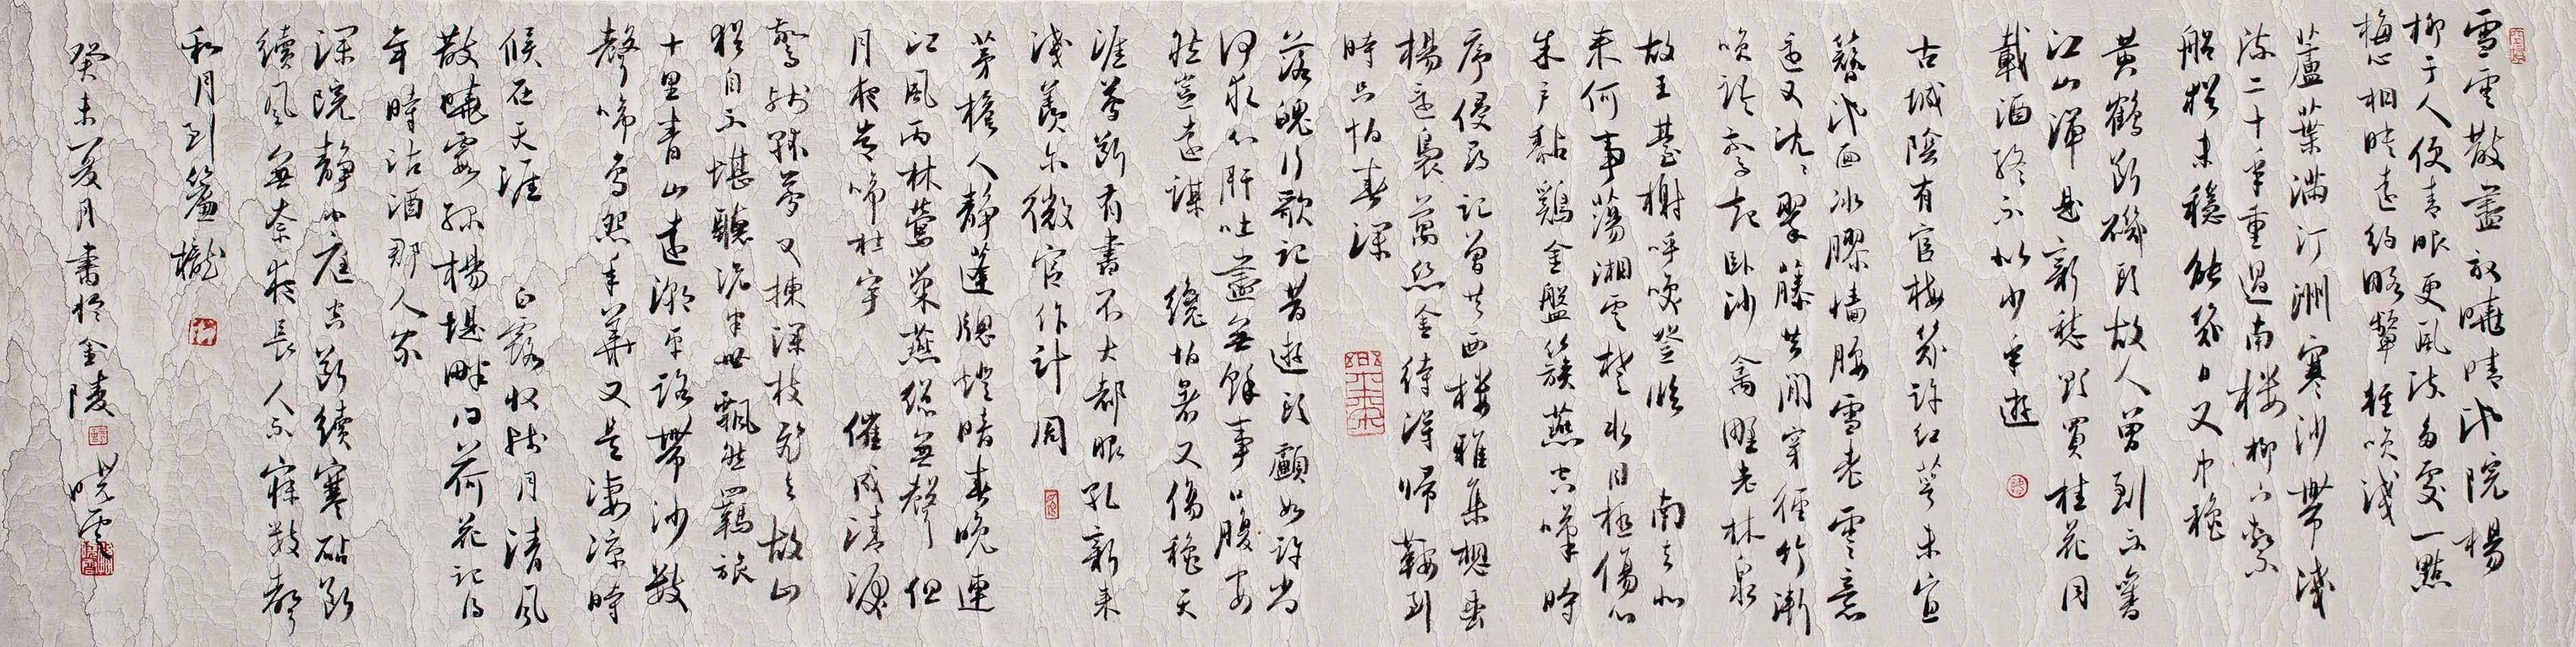 雪雲散盡放曉晴池院楊
柳于人便青眼更風流多處一點
梅心相映遠約略顰輕笑淺
蘆葉滿汀洲寒沙帶淺
流二十年重過南樓柳下繫
船猶未穩能幾日又中秋
黃鶴斷磯頭故人曾到不舊
江山渾是新愁欲買桂花同
載酒終不似少年遊
古城陰有官梅幾許紅萼未宜
簪池面冰膠牆腰雪老雲意
還又沈沈翠藤共閒穿徑竹漸
笑語驚起臥沙禽野老林泉
故王臺榭呼喚登臨 南去北
來何事蕩湘雲楚水目極傷心
朱戶黏鷄金盤簇燕空嘆時
序侵尋記曾共西樓雅集想垂
楊還裊萬絲金待得歸鞍到
時只怕春深
落魄行歌記昔遊頭顱如許尚
何求心肝吐盡無餘事口腹安
然豈遠謀 纔怕暑又傷秋天
涯夢斷有書不大都眼孔新來
淺羨尔微官作計周
茅檐人靜蓬窗燈暗春晚連
江風雨林鶯巢燕總無聲但
月夜常啼杜宇 催成清淚
驚殘孤夢又揀深枝飛去故山
猶自不堪聽況半世飄然羈旅
十里青山遠潮平路帶沙數
聲啼鳥怨年華又是淒涼時
候在天涯 白露收殘月清風
散曉霞綠楊堤畔問荷花記得
年時沽酒那人家
深院靜小庭空斷續寒砧斷
續風無奈夜長人不寐數聲
和月到簾櫳
癸未夏月書於金陵 曉雲